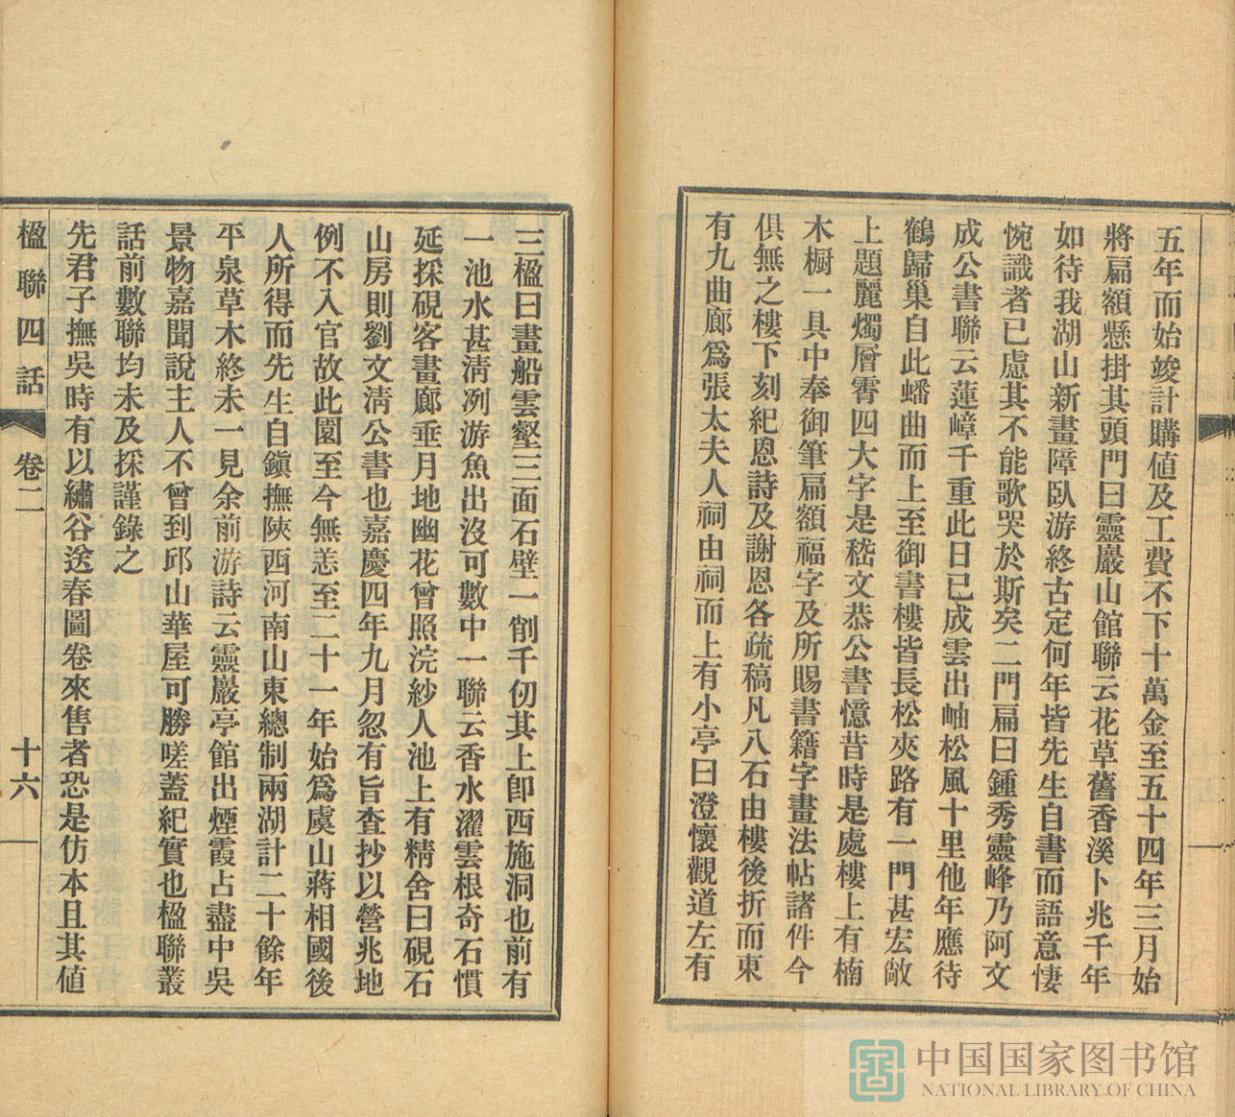 五年而始竣計購値及工費不下十萬金至五十四年三月始
將扁額懸掛其頭門曰靈巖山館聯云花草舊香溪卜兆千年
如待我湖山新畫障臥游終古定何年皆先生自書而語意悽
惋識者已慮其不能歌哭於斯矣二門扁曰鍾秀靈峰乃阿文
成公書聯云蓮嶂千重此日已成雲出岫松風十里他年應待
鶴歸巢自此蟠曲而上至御書樓皆長松夾路有一門甚宏敞
上題麗燭層霄四大字是嵇文恭公書憶昔時是處樓上有楠
木櫥一具中奉御筆扁額福字及所賜書籍字畫法帖諸件今
俱無之樓下刻紀恩詩及謝恩各疏稿凡八石由樓後折而東
有九曲廊爲張太夫人祠由祠而上有小亭曰澄懷觀道左有
三楹曰畫船雲壑三面石壁一削千仞其上卽西施洞也前有
一池水甚清洌游魚出沒可數中一聯云香水濯雲根奇石慣
延採硯客畫廊垂月地幽花曾照浣紗人池上有精舍曰硯石
山房則劉文清公書也嘉慶四年九月忽有旨查抄以營兆地
例不入官故此園至今無恙至二十一年始爲虞山蔣相國後
人所得而先生自鎭撫陝西河南山東總制兩湖計二十餘年
平泉草木終未一見余前游詩云靈巖亭館出煙霞占盡中吳
景物嘉聞說主人不曾到邱山華屋可勝嗟蓋紀實也楹聯叢
話前數聯均未及採謹錄之
先君子撫吳時有以繡谷送春圖卷來售者恐是仿本且其値
楹聯四話 卷二 十六
中国国家图书馆
NATIONAL LIBRARY OF CHINA